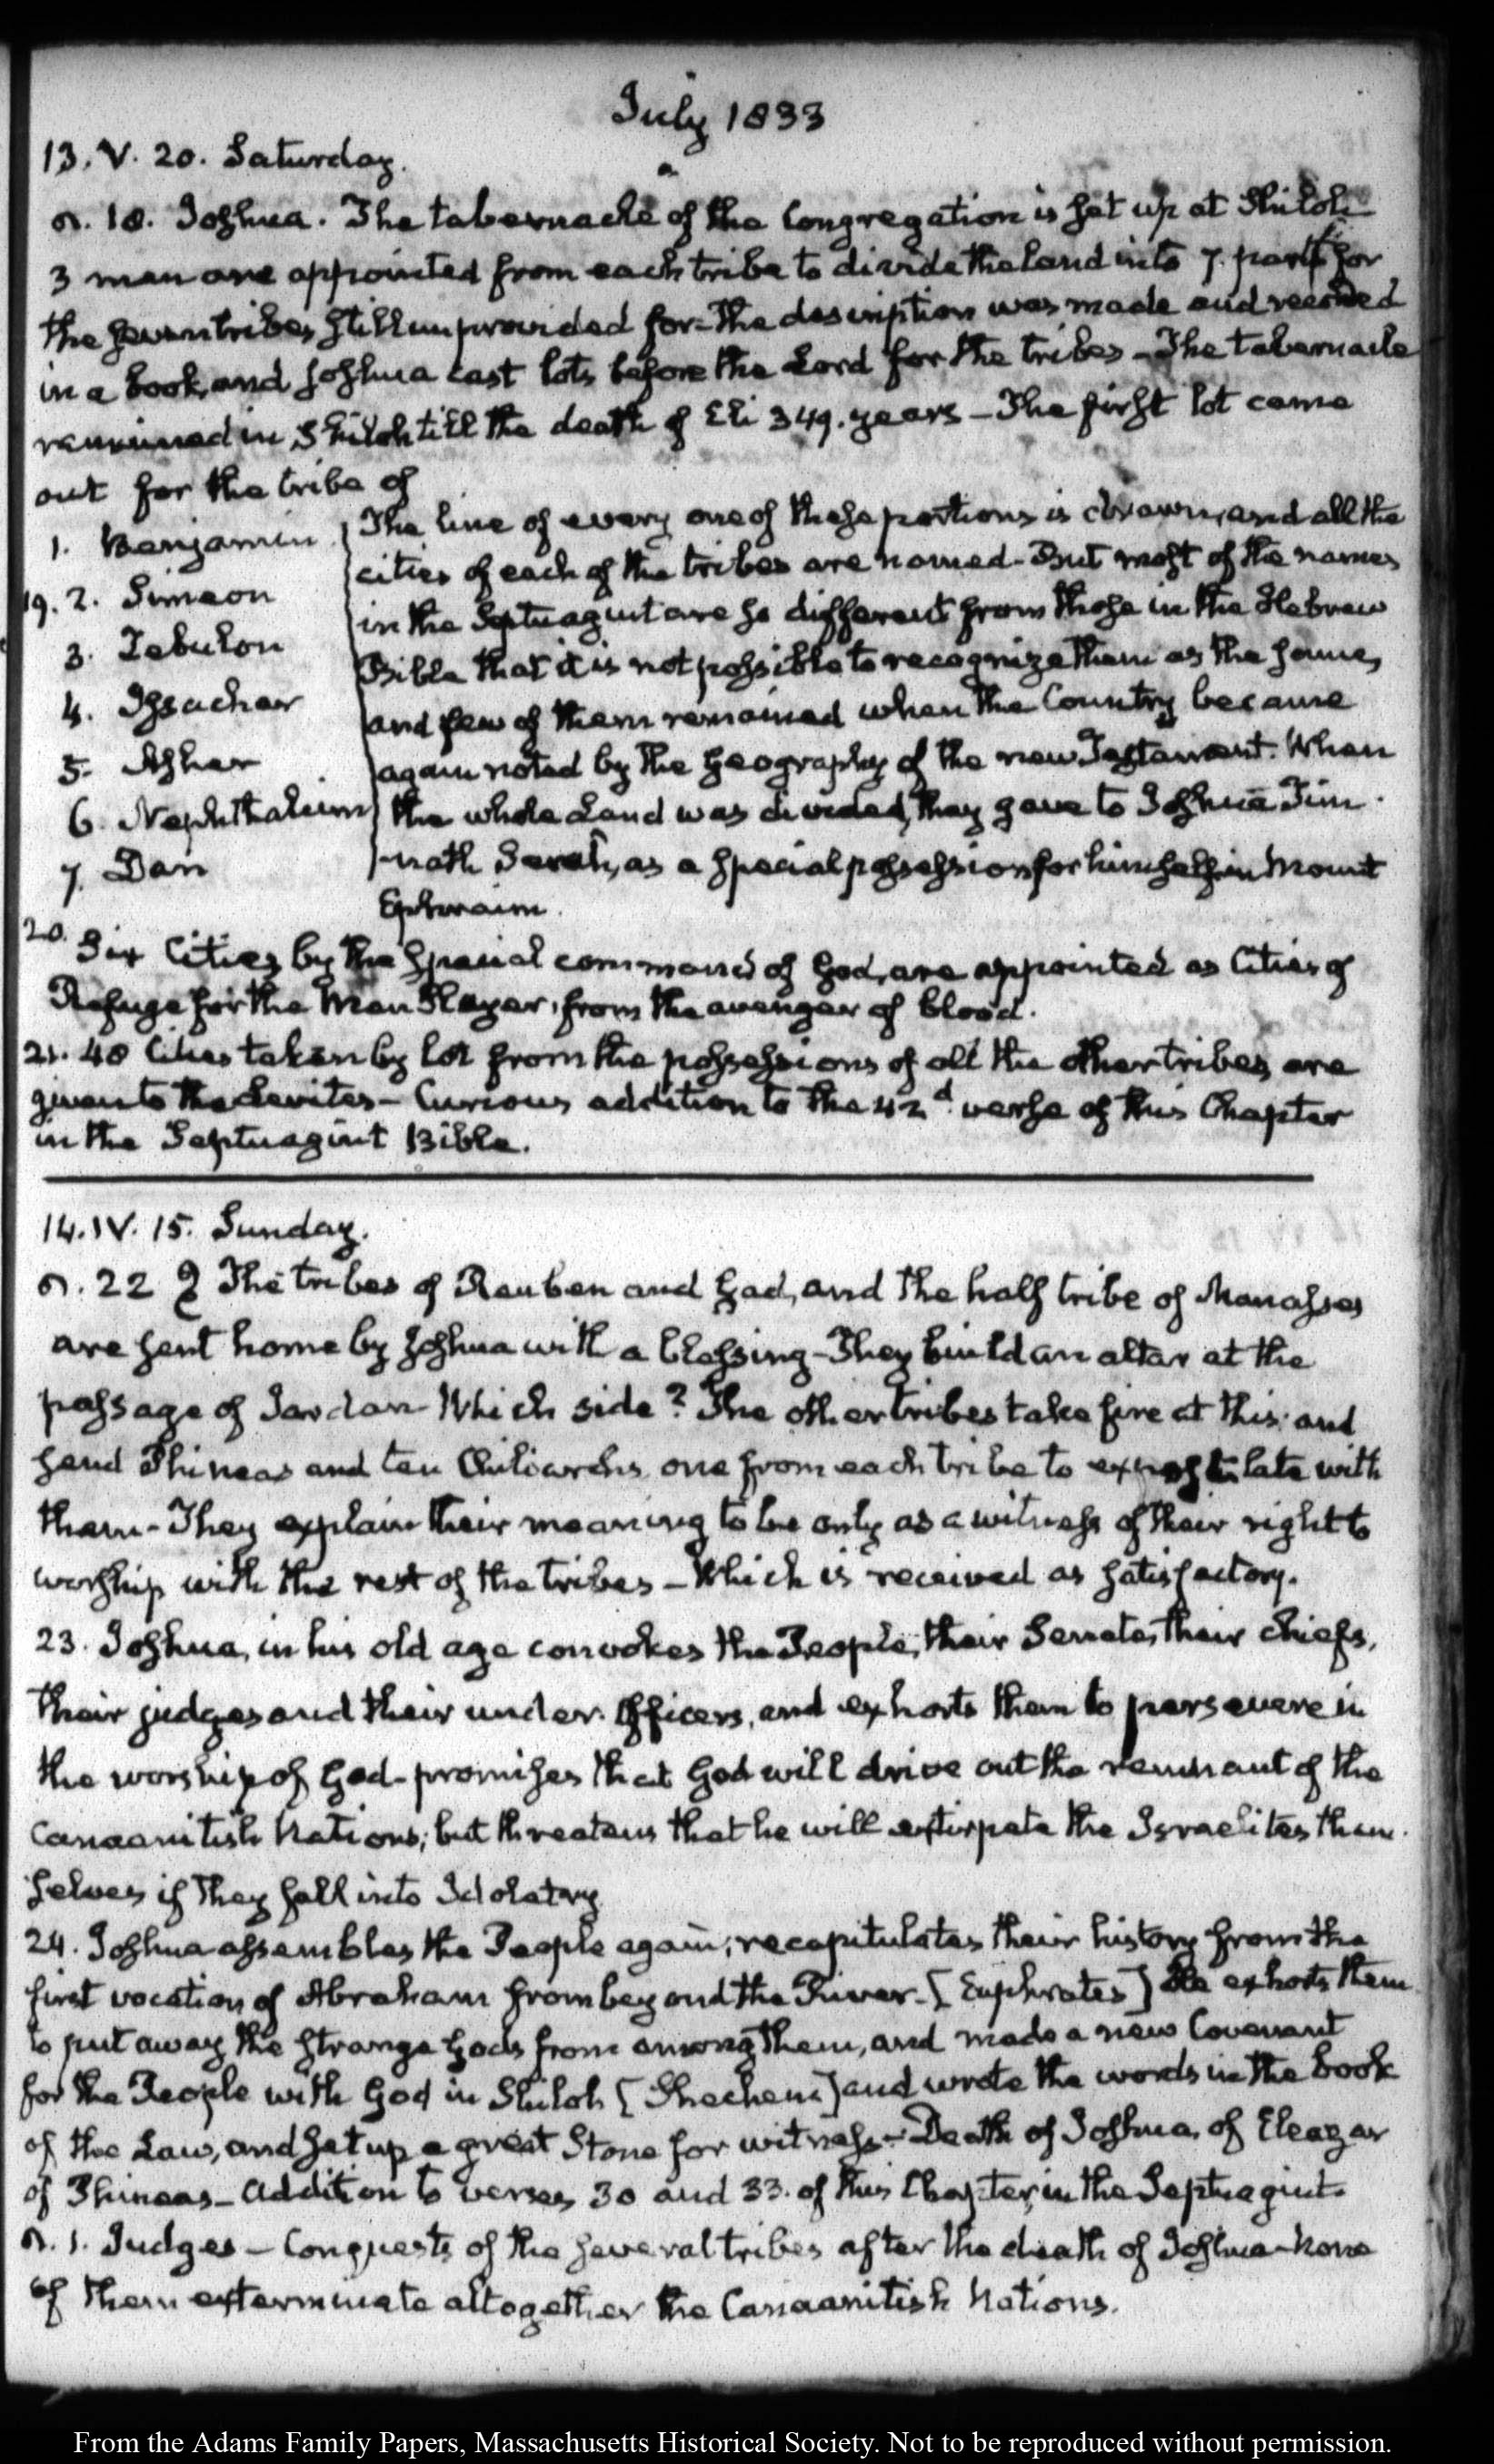 July 1833
13. V. 20. Saturday.
18. Joshua. The tabernacle of the Congregation is set up at Shiloh
3 men are appointed from each tribe to divide the land into 7. parts for
the seven tribes still unprovided for. The description was made and recorded
in a book, and Joshua cast lots before the Lord for the tribes – The tabernacle
remained in Shiloh till the death of Eli 349. years – The first lot came
out for the tribe of
1. Benjamin
19. 2. Simeon
3. Zebulon
4. Issachar
5. Asher
6. Nephthaleim
7. Dan
The line of every one of these portions is drawn, and all the
cities of each of the tribes are named – But most of the names
in the Septuagint are so different from those in the Hebrew
Bible that it is not possible to recognize them as the same,
and few of them remained when the Country became
again noted by the geography of the new Testament. When
the whole Land was divided, they gave to Joshua Tim-
nath Serah, as a special possession for himself in Mount
Ephraim.
20. Six Cities by the special command of God, are appointed as Cities of
Refuge for the Man Slayer, from the avenger of blood.
21. 48 Cities taken by lot from the possessions of all the other tribes are
given to the Levites – Curious addition to the 42d. verse of this Chapter
in the Septuagint Bible.
14. IV. 15. Sunday.
22 The tribes of Reuben and Gad, and the half tribe of Manasses
are sent home by Joshua with a blessing – They build an altar at the
passage of Jordan – Which side? The other tribes take fire at this and
send Phineas and ten Chiliarchs one from each tribe to expostulate with
them – They explain their meaning to be only as a witness of their right to
worship with the rest of the tribes – Which is received as satisfactory.
23. Joshua, in his old age convokes the People, their Senate, their chiefs,
their judges and their under officers, and exhorts them to persevere in
the worship of God – promises that God will drive out the remnant of the
Canaanitish Nations; but threatens that he will extirpate the Israelites them-
selves if they fall into Idolatry
24. Joshua assembles the People again; recapitulates their history from the
first vocation of Abraham from beyond the River – [Euphrates] He exhorts them
to put away the strange Gods from among them, and made a new Covenant
for the People with God in Shiloh [Shechem] and wrote the words in the book
of the Law, and set up a great Stone for witness – Death of Joshua, of Eleazar
of Phineas – Addition to verses 30 and 33. of this Chapter, in the Septuagint
1. Judges – Conquests of the several tribes after the death of Joshua – None
of them exterminate altogether the Canaanitish Nations.
From the Adams Family Papers, Massachusetts Historical Society. Not to be reproduced without permission.